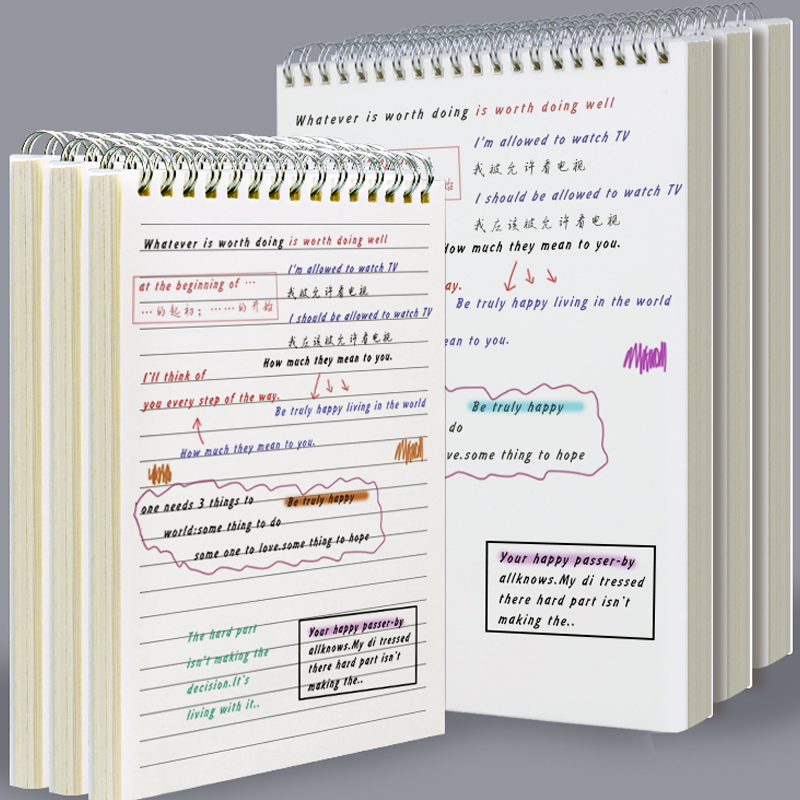 Whatever is worth doing is worth doing well
I'm allowed to watch TV
at the beginning of ···
我被允许看电视
···的起初；······的开始
I should be allowed to watch TV
我应该被允许看电视
How much they mean to you.
I'll think of
you every step of the way.
Be truly happy living in the world
How much they mean to you.
one needs 3 things to
Be truly happy
world:some thing to do
some one to love.some thing to hope
The hard part
isn't making the
decision.It's
living with it..
Your happy passer-by
allknows.My di tressed
there hard part isn't
making the..
Whatever is worth doing is worth doing well
I'm allowed to watch TV
我被允许看电视
始
I should be allowed to watch TV
我应该被允许看电视
How much they mean to you.
ay.
Be truly happy living in the world
ean to you.
Be truly happy
do
ve.some thing to hope
Your happy passer-by
allknows.My di tressed
there hard part isn't
making the..